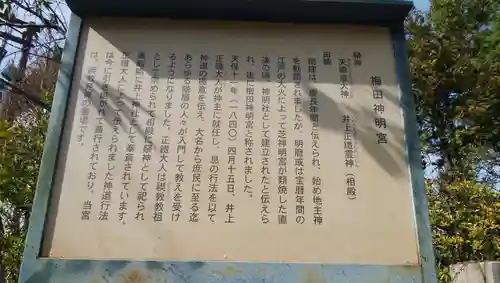 梅田神明宮
祭神
天照皇大神 井上正鐵霊神(相殿)
由緒
は、慶長年間に伝えられ、始め地主神
を勧請されましたが、明暦或は宝暦年間の
江戸の大火によって芝神明宮が類焼した直
後の頃、神明社として建立されたと伝えら
れ、後に梅田神明宮と称されました。
天保十一年(一八四〇)四月十五日、井上
正鐵大人が神主に就任し、息の行法を以て
神道の極意を伝え、大名から庶民に至る迄
あらゆる階層の人々が入門して教えを受け
るようになりました。正鐵大人は禊教教祖
として崇められて相殿に祭神として祀られ
に井上神社として奉斎されています。
正鐵大人によって伝えられました神道行法
は、今に引き継がれて斎行されており、当宮
は、禊教の霊場です。